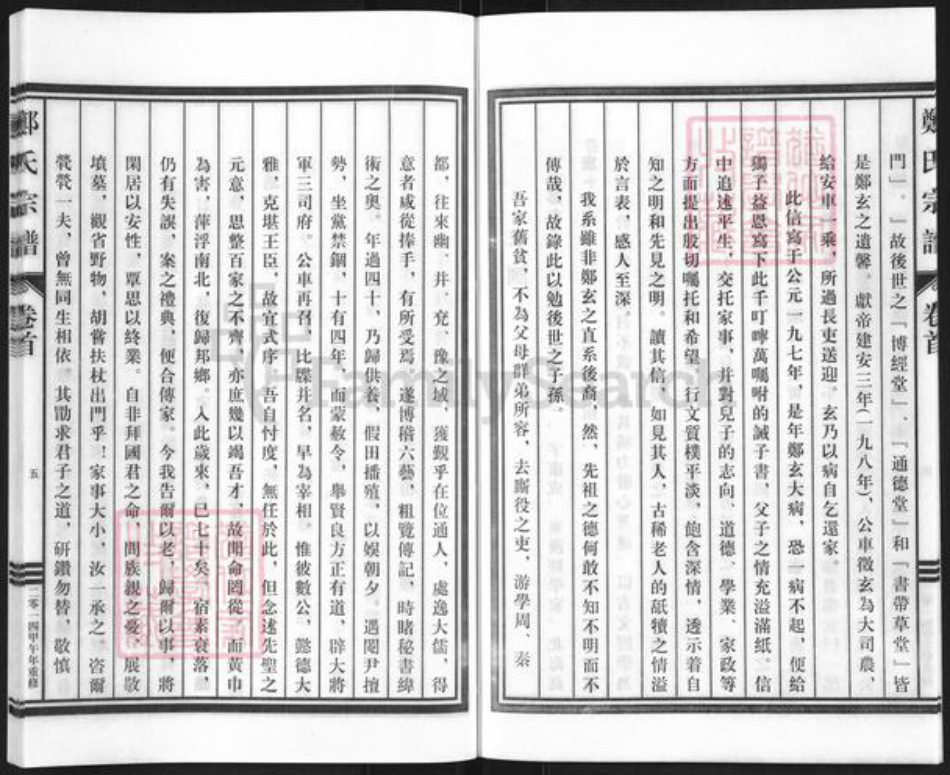 鄭氏宗譜
卷首
門」。』故後世之「博經堂」、「通德堂」和「書帶草堂」皆
是鄭玄之遺馨。獻帝建安三年(一九八年),公車徵玄為大司農,
給安車一乘,所過長吏送迎。玄乃以病自乞還家。
此信寫于公元一九七年,是年鄭玄大病,恐一病不起,便給
獨子益恩寫下此千叮嚀萬囑咐的誡子書,父子之情充溢滿紙。信
中追述平生,交托家事,并對兒子的志向、道德、學業、家政等
方面提出殷切囑托和希望。行文質樸平淡,飽含深情,透示着自
知之明和先見之明。讀其信,如見其人,古稀老人的舐犢之情溢
於言表,感人至深。
我系雖非鄭玄之直系後裔,然,先祖之德何敢不知不明而不
傳哉,故錄此以勉後世之子孫。
吾家舊貧,不為父母群弟所容,去厮役之吏,游學周、秦
都,往來幽、并、兗、豫之域,獲覲乎在位通人,處逸大儒,得
意者咸從捧手,有所受焉。遂博稽六藝,粗覽傳記,時睹秘書緯
術之奧。年過四十,乃歸供養,假田播殖,以娛朝夕。遇閹尹擅
勢,坐黨禁錮,十有四年,而蒙赦令,舉賢良方正有道,辟大將
軍三司府。公車再召,比牒并名,早為宰相。惟彼數公,懿德大
雅,克堪王臣,故宜式序。吾自忖度,無任於此,但念述先聖之
元意,思整百家之不齊,亦庶幾以竭吾才,故聞命罔從。而黃巾
為害,萍浮南北,復歸邦鄉。入此歲來,已七十矣。宿素衰落,
仍有失誤,案之禮典,便合傳家。今我告爾以老,歸爾以事,將
閑居以安性,覃思以終業。自非拜國君之命,問族親之憂,展敬
墳墓,觀省野物,胡嘗扶杖出門乎!家事大小,汝一承之。咨爾
煢煢一夫,曾無同生相依。其勖求君子之道,研鑽勿替,敬慎
鄭氏宗譜
卷首
五
二零一四甲午年重修
FamilySearch